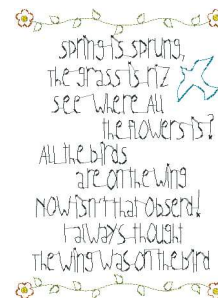 spring is sprung,
the grass is riz
see where all
the flowers is?
All the birds
are on the wing
Now isn't that obserd!
I always thought
the wing was on the bird